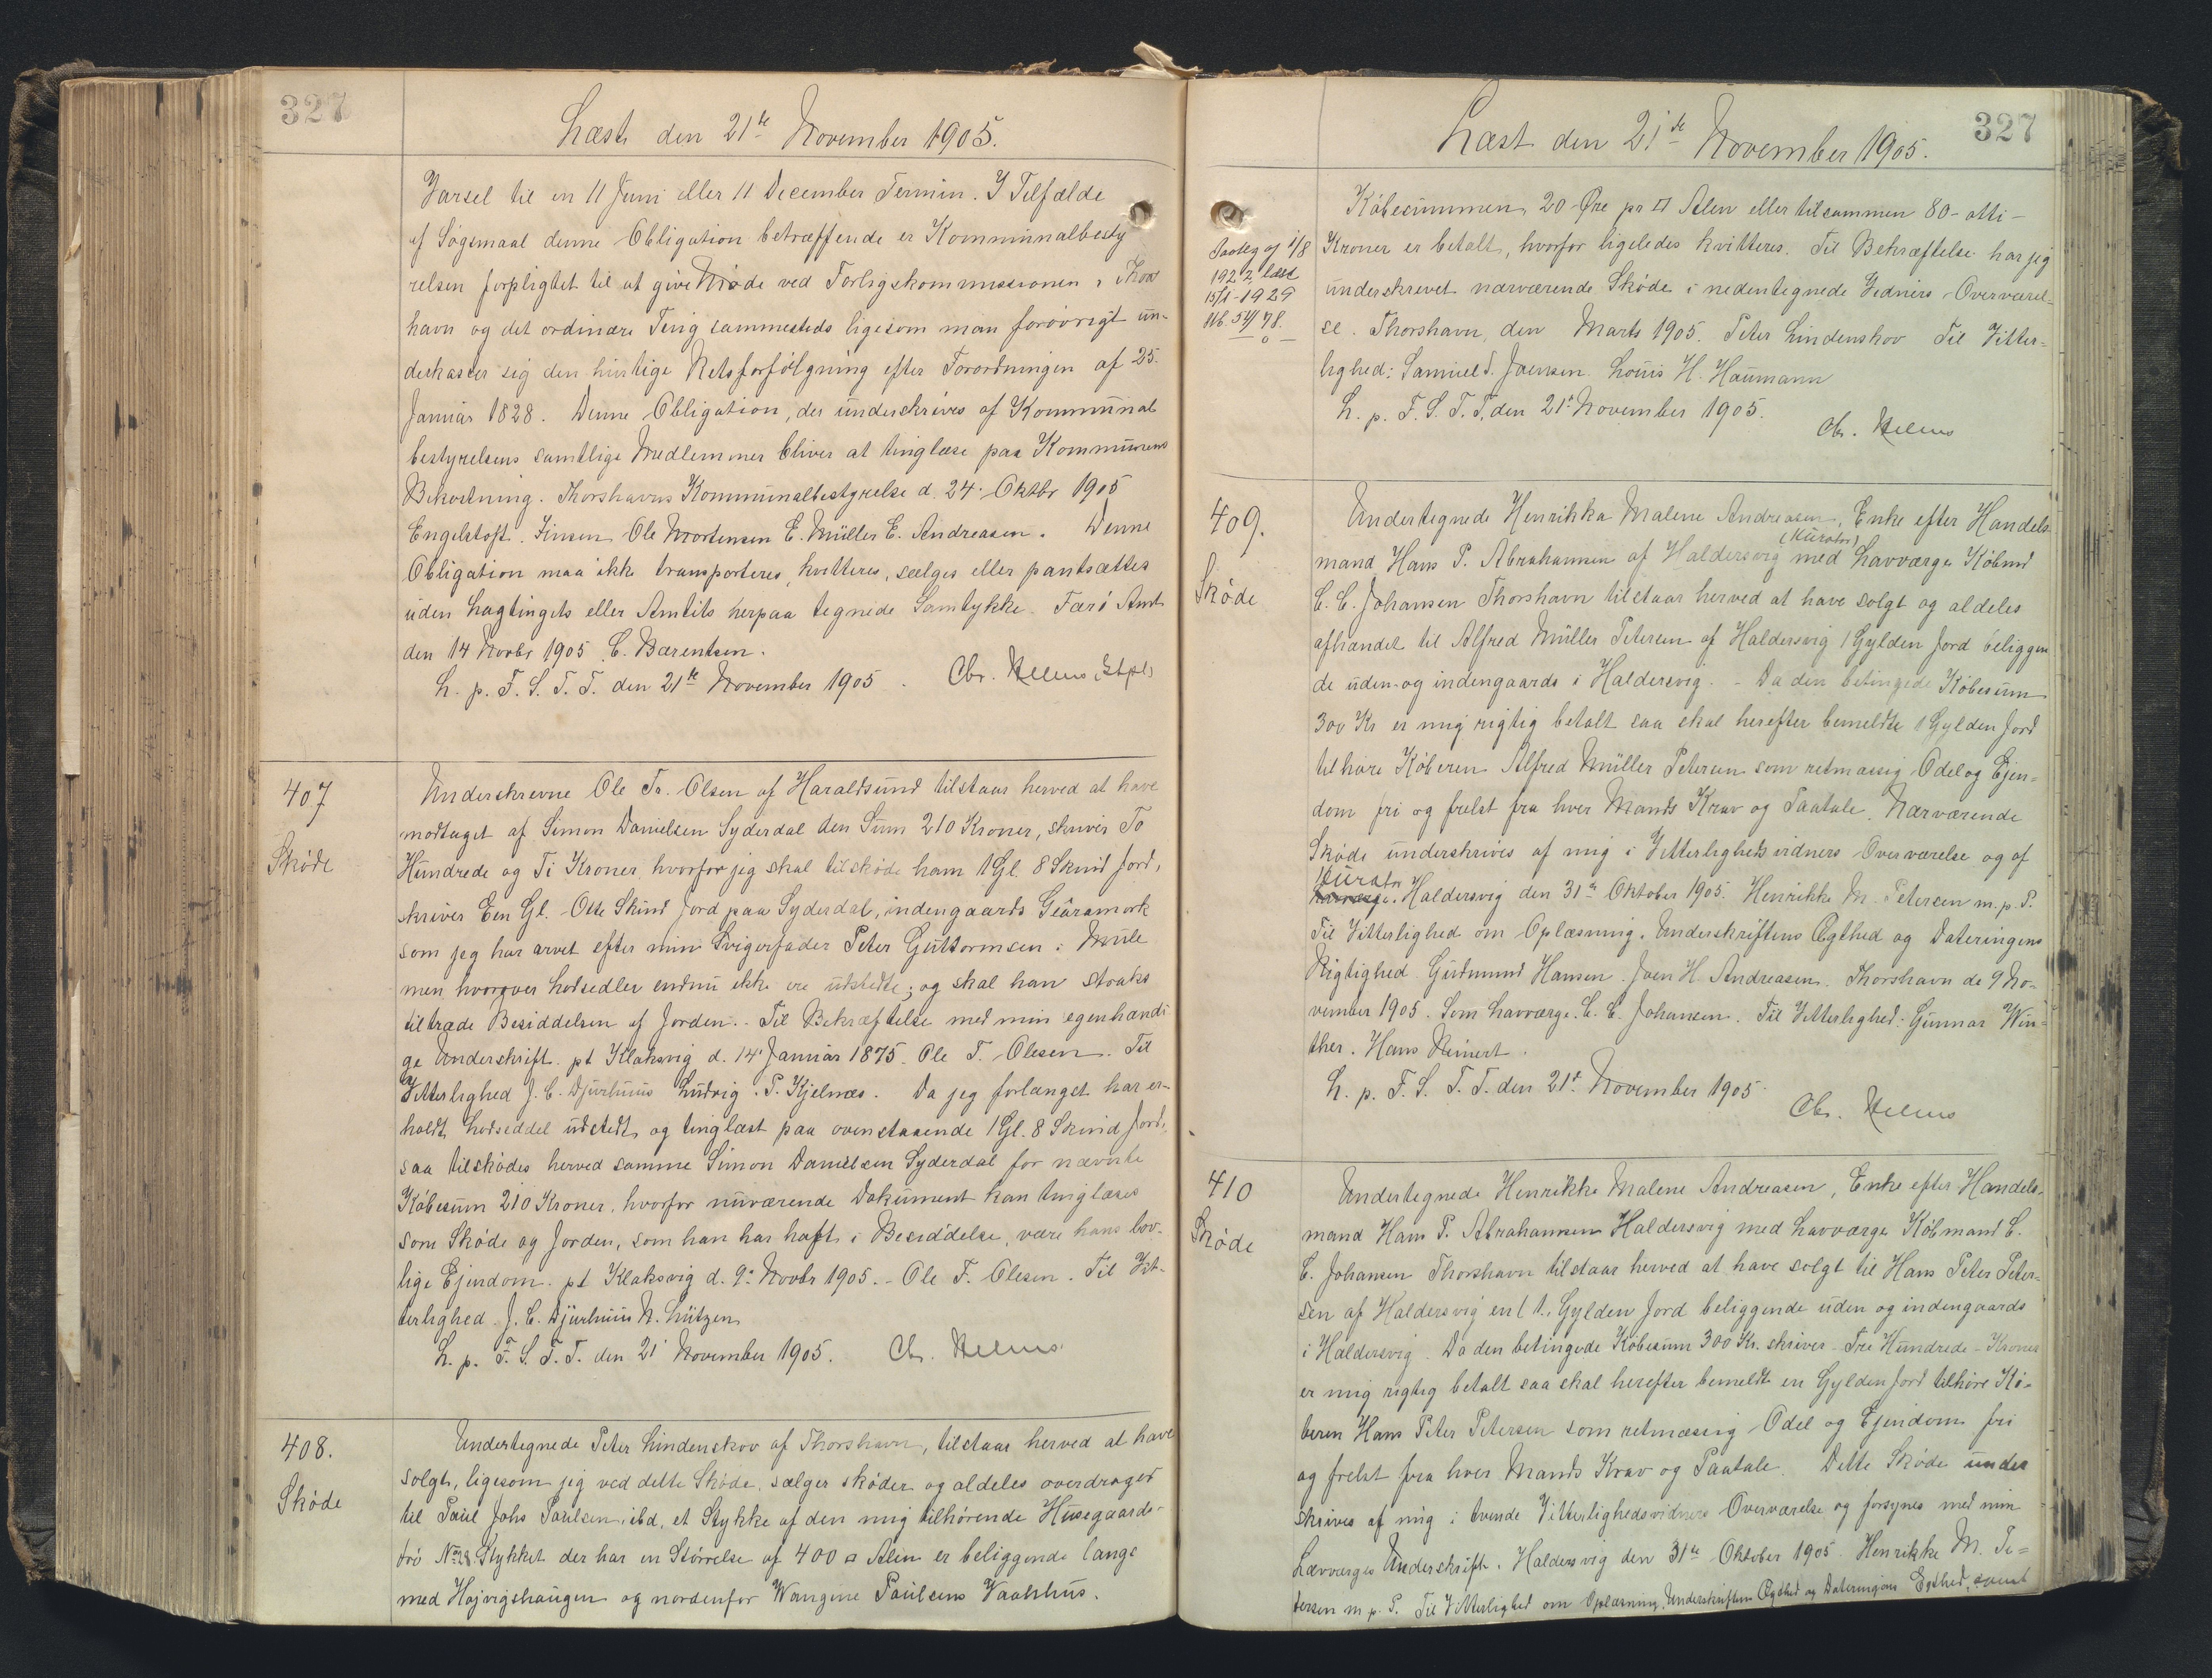 327
Læst den 21te November 1905.
Varsel til en 11 Juni eller 11 December Termin. I Tilfælde
af Søgsmaal denne Obligation betræffende er Kommunalbesty
relsen forpligtet til at give Møde ved Forligskommissionen i Thors
havn og det ordinære Ting sammesteds ligesom man forøvrigt un-
derkaster sig den hurtige Retsforfølgning efter Forordningen af 25.
Januar 1828. Denne Obligation, der underskrives af Kommunal
bestyrelsens samtlige Medlemmer bliver at tinglæse paa Kommunens
Bekostning. Thorshavns Kommunalbestyrelse d. 24. Oktbr 1905
Engelstoft. Jensen Ole Mortensen E. Müller E. Andreasen. Denne
Obligation maa ikke transporteres, kvitteres, sælges eller pantsættes
uden Lagtingets eller Amtets herpaa tegnede Samtykke. Færø Amt
den 14 Novbr 1905 C. Bærentsen.
L. p. F. S. T. T. den 21te November 1905. Chr. Helms, Stpl)
407
Skøde
Underskrevne Ole Tr. Olsen af Haraldsund tilstaar herved at have
modtaget af Simon Danielsen Syderdal den Sum 210 Kroner, skriver To
Hundrede og Ti Kroner, hvorfor jeg skal tilskøde ham 1 Gl. 8 Skind Jord,
skriver Een Gl. Otte Skind Jord paa Syderdal, indengaards Geäramork
som jeg har arvet efter min Svigerfader Peter Guttormsen i Mule
men hvorover Lodsedler endnu ikke ere udstedte; og skal han straks
tiltræde Besiddelsen af Jorden. - Til Bekræftelse med min egenhændi
ge Underskrift. pt Klaksvig d. 14' Januar 1875. Ole T. Olesen. Til
Vitterlighed J. C. Djurhuus Ludvig. P. Kjelnæs. Da jeg forlængst har er-
holdt Lodseddel udstedt og tinglæst paa ovenstaaende 1 Gl. 8 Skind Jord,
saa tilskødes herved samme Simon Danielsen Syderdal for nævnte
Købesum 210 Kroner, hvorfor nuværende Dokument kan tinglæses
som Skøde og Jorden, som han har haft i Besiddelse, være hans lov-
lige Ejendom. pt Klaksvig d. 9: Novbr 1905. - Ole T. Olesen. Til Vit-
terlighed. J. C. Djurhuus N. Lützen
L. p. F. S. T. T. den 21' November 1905. Chr. Helms
408.
Skøde
Undertegnede Peter Lindenskov af Thorshavn, tilstaar herved at have
solgt, ligesom jeg ved dette Skøde, sælger skøder og aldeles overdrager
til Poul Johs Poulsen ibd, et Stykke af den mig tilhørende Husegaards-
trø No 28. Stykket der har en Størrelse af 400 □ Alen er beliggende langs
med Højvigshaugen og nordenfor Wangine Poulsens Vaahus.
327
Læst den 21de November 1905.
Paateg af 1/8
1922 læst
15/1-1929
Nb. 54/78.
— o —
Købesummen 20 Øre pr □ Alen eller tilsammen 80 - otti -
Kroner er betalt, hvorfor ligeledes kvitteres. Til Bekræftelse har jeg
underskrevet nærværende Skøde i nedentegnede Vidners Overværel-
se. Thorshavn, den Marts 1905. Peter Lindenskov Til Vitter-
lighed: Samuel T. Joensen. Louis H. Haumann
L. p. F. S. T. T. den 21' November 1905.
Chr. Helms
409.
Skøde
Undertegnede Henrikka Malene Andreasen, Enke efter Handels-
mand Hans P. Abrahamsen af Haldersvig med (Kurator) Lavværge Købmd
C. C. Johansen Thorshavn tilstaar herved at have solgt og aldeles
afhændet til Alfred Müller Petersen af Haldersvig 1 Gylden Jord beliggen
de uden- og indengaards i Haldersvig. - Da den betingede Købesum
300 Kr er mig rigtig betalt saa skal herefter bemeldte 1 Gylden Jord
tilhøre Køberen Alfred Müller Petersen som retmæssig Odel og Ejen-
dom fri og frelst fra hver Mands Krav og Paatale. Nærværende
Skøde underskrives af mig i Vitterlighedsvidners Overværelse og af
Kurator
Lavværge. Haldersvig den 31te Oktober 1905. Henrikke M. Petersen m. p. P.
Til Vitterlighed om Oplæsning, Underskriftens Ægthed og Dateringens
Rigtighed Gudmund Hansen. Joen H. Andreasen. Thorshavn de 9 No-
vember 1905. Som Lavværge. C. C. Johansen. Til Vitterlighed: Gunnar Win-
ther. Hans Reinert.
L. p. F. S. T. T. den 21' November 1905.
Chr. Helms
410
Skøde
Undertegnede Henrikke Malene Andreasen, Enke efter Handels-
mand Hans P. Abrahamsen Haldersvig med Lavværge Købmand C.
C. Johansen Thorshavn tilstaar herved at have solgt til Hans Peter Peter-
sen af Haldersvig en (1. Gylden Jord beliggende uden og indengaards
i Haldersvig. Da den betingede Købesum 300 Kr. skriver - Tre Hundrede - Kroner
er mig rigtig betalt saa skal herefter bemeldte en Gylden Jord tilhøre Kø-
beren Hans Peter Petersen som retmæssig Odel og Ejendom fri
og frelst fra hver Mands Krav og Paatale. Dette Skøde under
skrives af mig i tvende Vitterlighedsvidners Overværelse og forsynes med min
Lavværges Underskrift. Haldersvig den 31te Oktober 1905. Henrikke M. Pe-
tersen m. p. P. Til Vitterlighed om Oplæsning, Underskriftens Ægthed og Dateringens Egthed, samt